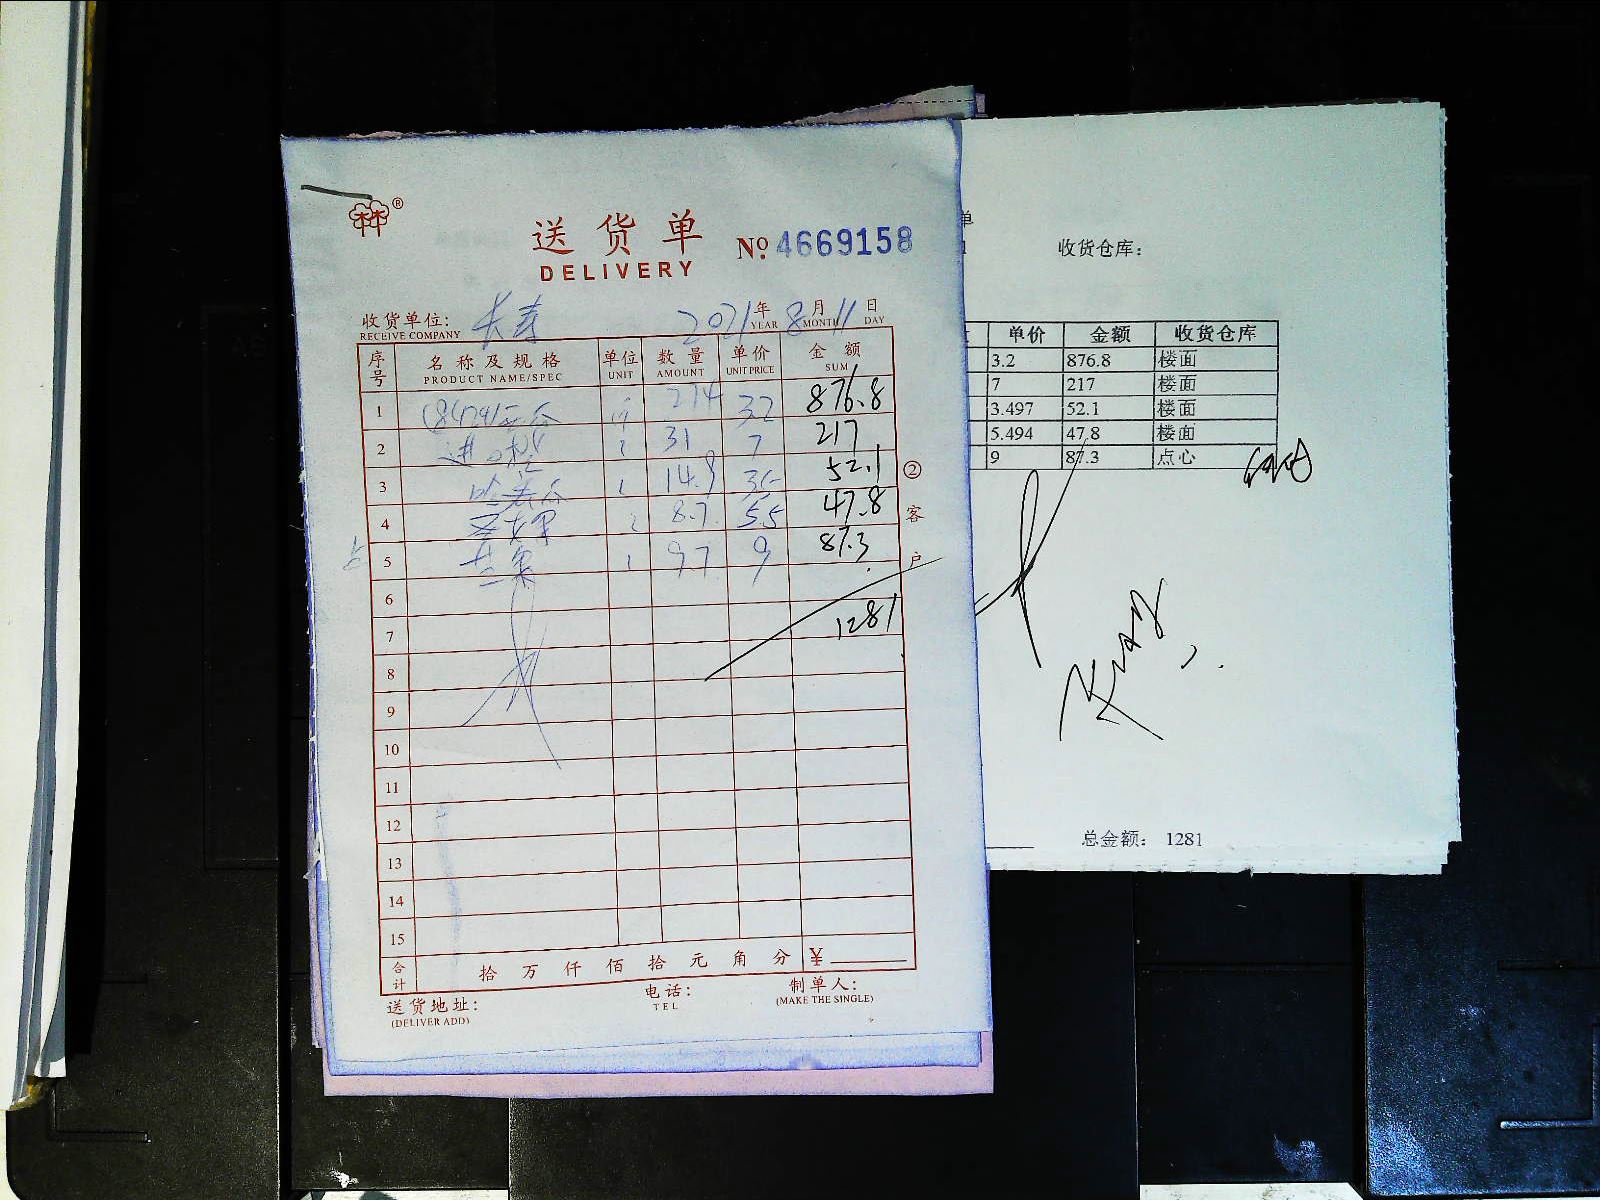 ®
送货单 № 4669158
DELIVERY
收货单位: 长寿 2021年 8月 11日
RECEIVE COMPANY YEAR MONTH DAY
序号 名称及规格 单位 数量 单价 金额
PRODUCT NAME/SPEC UNIT AMOUNT UNIT PRICE SUM
1 (8424)西瓜 斤 274 3.2 876.8
2 进口橙 31 7 217
3 哈密瓜 14.9 3.5 52.1
4 8.7 5.5 47.8
5 芒果 9.7 9 87.3
6
7 1281
8
9
10
11
12
13
14
15
合计 拾万仟佰拾元角分 ¥
送货地址: 电话: 制单人:
(DELIVER ADD) TEL (MAKE THE SINGLE)
②客户
单
收货仓库:
单价 金额 收货仓库
3.2 876.8 楼面
7 217 楼面
3.497 52.1 楼面
5.494 47.8 楼面
9 87.3 点心
总金额: 1281